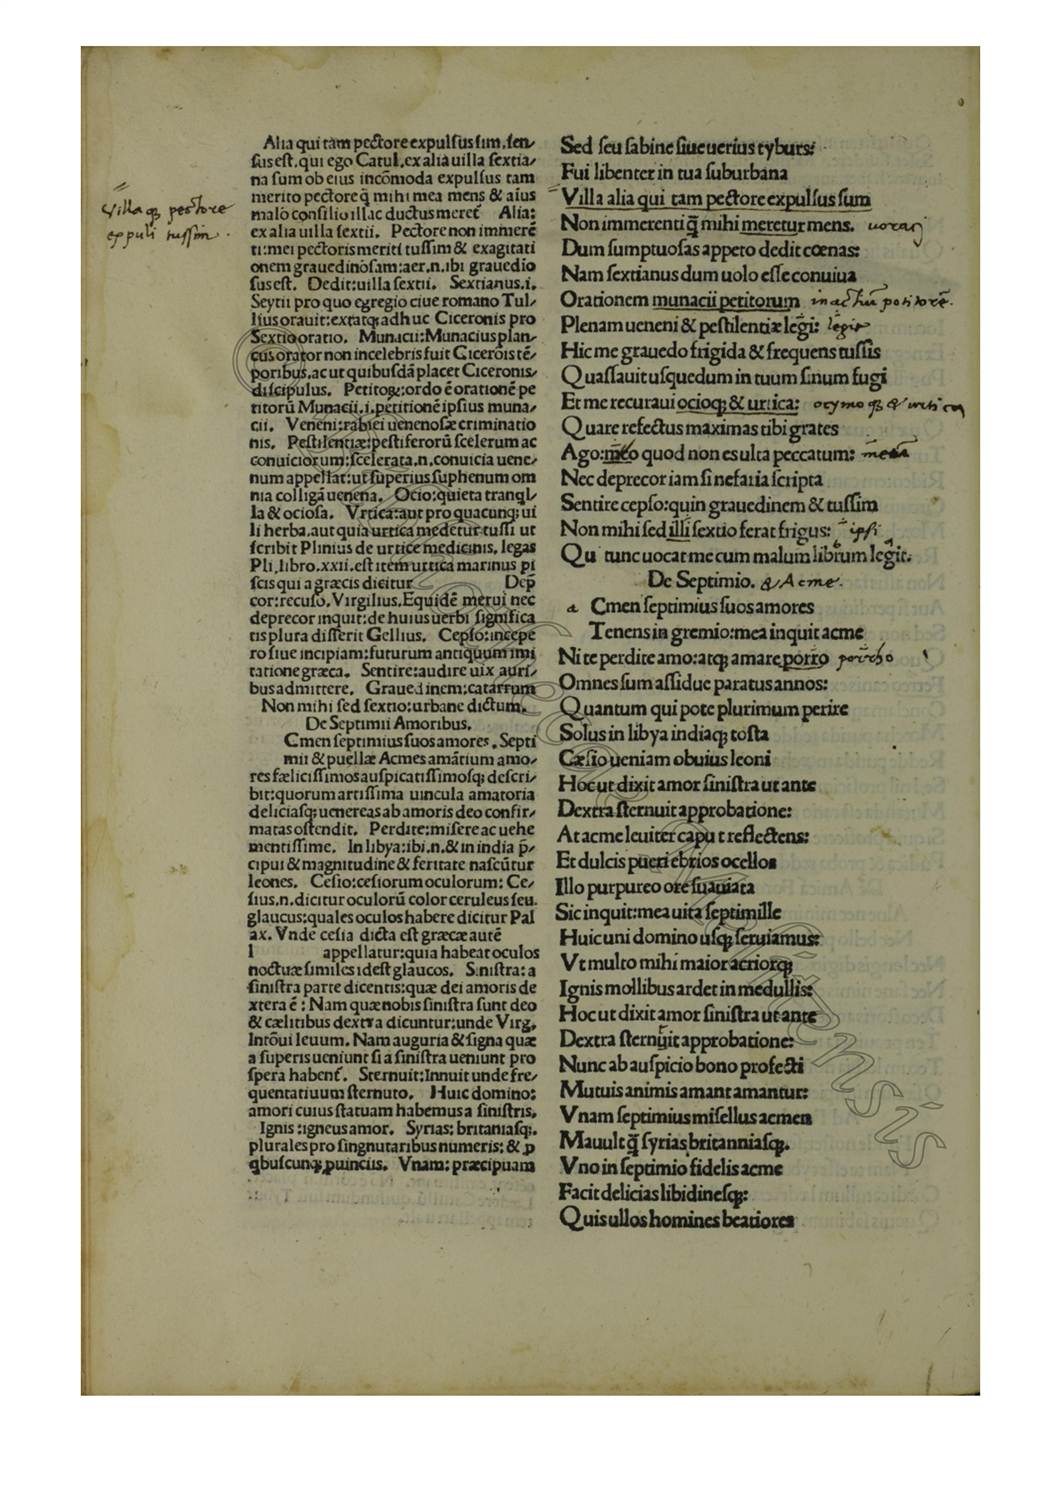 Villa q; pectore
expuli tussim.
Alia qui tam pectore expulsus sum, sen/
sus est, qui ego Catul, ex alia uilla sextia/
na sum ob eius incōmoda expulsus tam
merito pectore q̄ mihi mea mens & aīus
malo consilio illac ductus meret̄ Alia:
ex alia uilla sextii. Pectore non immerē
ti: mei pectoris meriti tussim & exagitati
onem grauedinōsam: aer .n. ibi grauedio
sus est. Dedit: uilla sextii. Sextianus .i.
Seytii pro quo egregio ciue romano Tul/
lius orauit: extatq; adhuc Ciceronis pro
Sextio oratio. Munacii: Munacius plan/
cus orator non incelebris fuit Ciceroīs tē/
poribus, ac ut quibusdā placet Ciceronis
discipulus. Petitoꝝ: ordo ē orationē pe
titorū Munacii .i. petitionē ipsius muna/
cii. Veneni: rabiei uenenosæ criminatio
nis. Pestilentiæ: pestiferorū scelerum ac
conuiciorum: scelerata .n. conuicia uene/
num appellat: ut superius suphenum om
nia colligā uenena. Ocio: quieta tranql/
la & ociosa. Vrtica: aut pro quacunq; ui
li herba, aut quia urtica medetur tussi ut
scribit Plinius de urticę medicinis, legas
Pli. libro .xxii. est item urtica marinus pi
scis qui a græcis dicitur Dep̄
cor: recuso. Virgilius. Equidē merui nec
deprecor inquit: de huius uerbi significa
tis plura disserit Gellius. Cepso: incepe
ro siue incipiam: futurum antiquum imi
tatione græca. Sentire: audire uix auri/
bus admittere. Grauedinem: catarrum
Non mihi sed sextio: urbane dictum.
De Septimii Amoribus.
Cmen septimius suos amores. Septi
mii & puellæ Acmes amātium amo/
res fælicissimos auspicatissimosq; descri/
bit: quorum artissima uincula amatoria
deliciasq; uenereas ab amoris deo confir/
matas ostendit. Perdite: misere ac uehe
mentissime. In libya: ibi .n. & in india p̄/
cipui & magnitudine & feritate nascūtur
leones. Cesio: cesiorum oculorum: Ce/
sius .n. dicitur oculorū color ceruleus seu
glaucus: quales oculos habere dicitur Pal
ax. Vnde cesia dicta est græcæ autē
l appellatur: quia habeat oculos
noctuæ similes idest glaucos. Sinistra: a
sinistra parte dicentis: quæ dei amoris de
xtera ē: Nam quæ nobis sinistra sunt deo
& cælitibus dextra dicuntur: unde Virg.
Intōui leuum. Nam auguria & signa quæ
a superis ueniunt si a sinistra ueniunt pro
spera habent̄. Sternuit: Innuit unde fre/
quentatiuum sternuto. Huic domino:
amori cuius statuam habemus a sinistris.
Ignis: igneus amor. Syrias: britaniasq;.
plurales pro singnutaribus numeris: & ꝓ
q̄buscunq; ꝓuinciis. Vnam: præcipuam
Sed seu sabine siue uerius tyburs:
Fui libenter in tua suburbana
Villa alia qui tam pectore expulsus sum
Non immerenti q̄ mihi meretur mens.
Dum sumptuosas appeto dedit cœnas:
Nam sextianus dum uolo esse conuiua
Orationem munacii petitorum in actiū petitorē.
Plenam ueneni & pestilentiæ legi: legit
Hic me grauedo frigida & frequens tussis
Quassauit usquedum in tuum sinum fugi
Et me recuraui ocioq; & urtica: ocymo q; & urtica
Quare refectus maximas tibi grates
Ago: meo quod non es ulta peccatum: meū
Nec deprecor iam si nefaria scripta
Sentire cepso: quin grauedinem & tussim
Non mihi sed illi sextio ferat frigus: ipsi
Qu tunc uocat me cum malum librum legit.
De Septimio. & Acme.
a Cmen septimius suos amores
Tenens in gremio: mea inquit acme
Ni te perdite amo: atq; amare porro porrho
Omnes sum assidue paratus annos:
Quantum qui pote plurimum perire
Solus in libya indiaq; tosta
Cæsio ueniam obuius leoni
Hoc ut dixit amor sinistra ut ante
Dextra sternuit approbatione:
At acme leuiter capu t reflectens:
Et dulcis pueri ebrios ocellos
Illo purpureo ore suauiata
Sic inquit: mea uita septimille
Huic uni domino usq; seruiamus:
Vt multo mihi maior acriorq;
Ignis mollibus ardet in medullis:
Hoc ut dixit amor sinistra ut ante
Dextra sternuit approbatione:
Nunc ab auspicio bono profecti
Mutuis animis amant amantur:
Vnam septimius misellus acmen
Mauult q̄ syrias britanniasq;.
Vno in septimio fidelis acme
Facit delicias libidinesq;:
Quis ullos homines beatiores